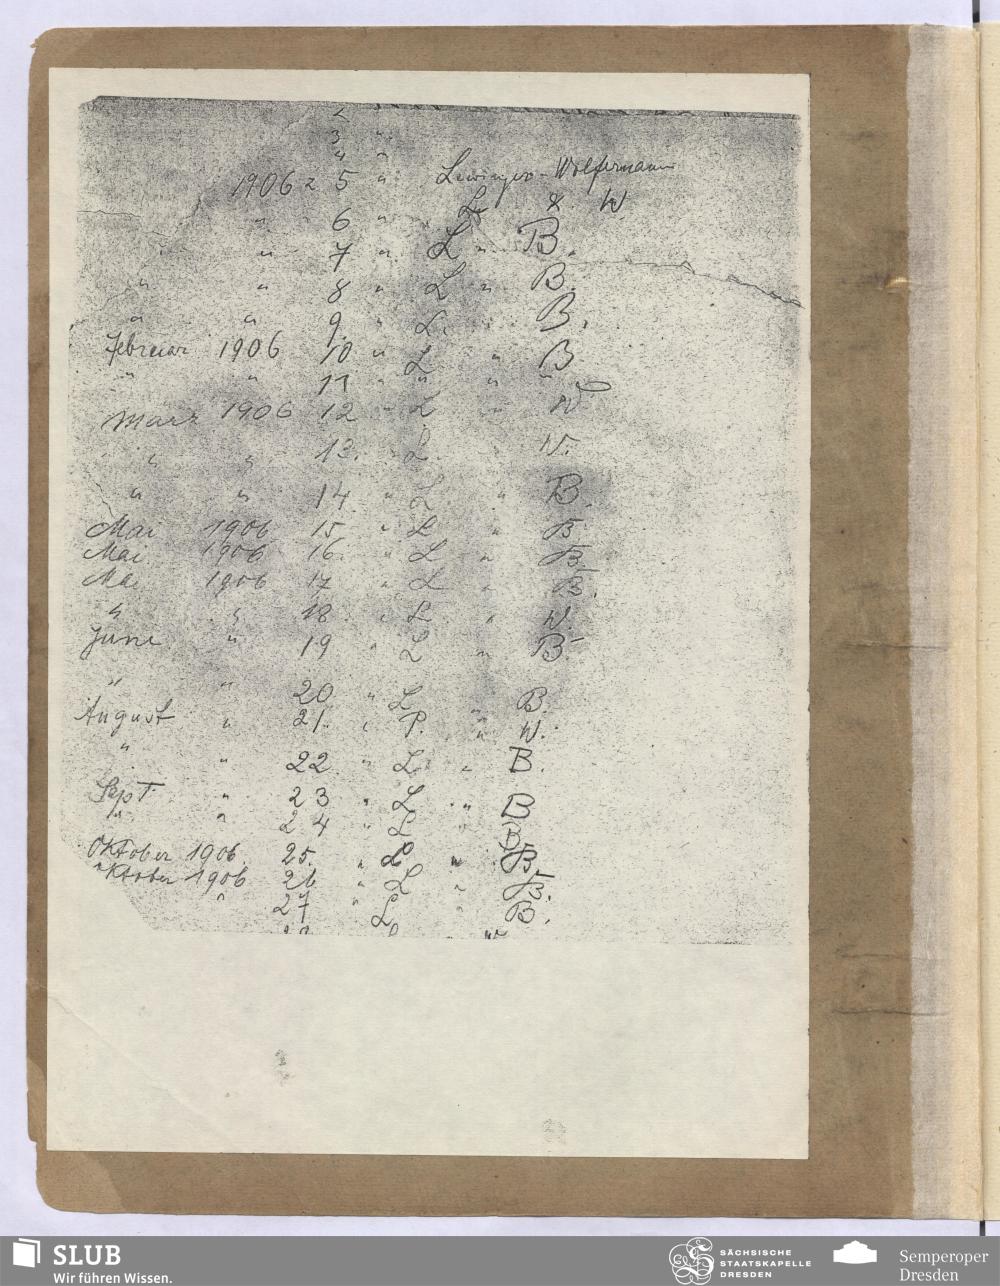 2
3 "
4 "
1906 z 5 " Lewinger - Wolfermann
" " 6 " L & W
" " 7 " L " B.
" " 8 " L " B.
" " 9. " L. " B.
Februar 1906 10 " L " B
" " 11 " " " "
März 1906 12 " L " W
" " 13. " L. W.
" " 14 " L " B.
Mai 1906 15 " L " B
Mai 1906 16. " L " B.
Mai 1906 17 " L " B.
" " 18. " L " W.
Juni " 19 " L " B.
" " 20 " L " B.
August " 21. " P. " W.
" " 22 " L " B.
Sept " 23 " L " B
" " 24 " L " B
Oktober 1906. 25. " L " B.
Oktober 1906 26 " L " B.
" 27 " L " B.
SLUB
Wir führen Wissen.
SÄCHSISCHE
STAATSKAPELLE
DRESDEN
Semperoper
Dresden